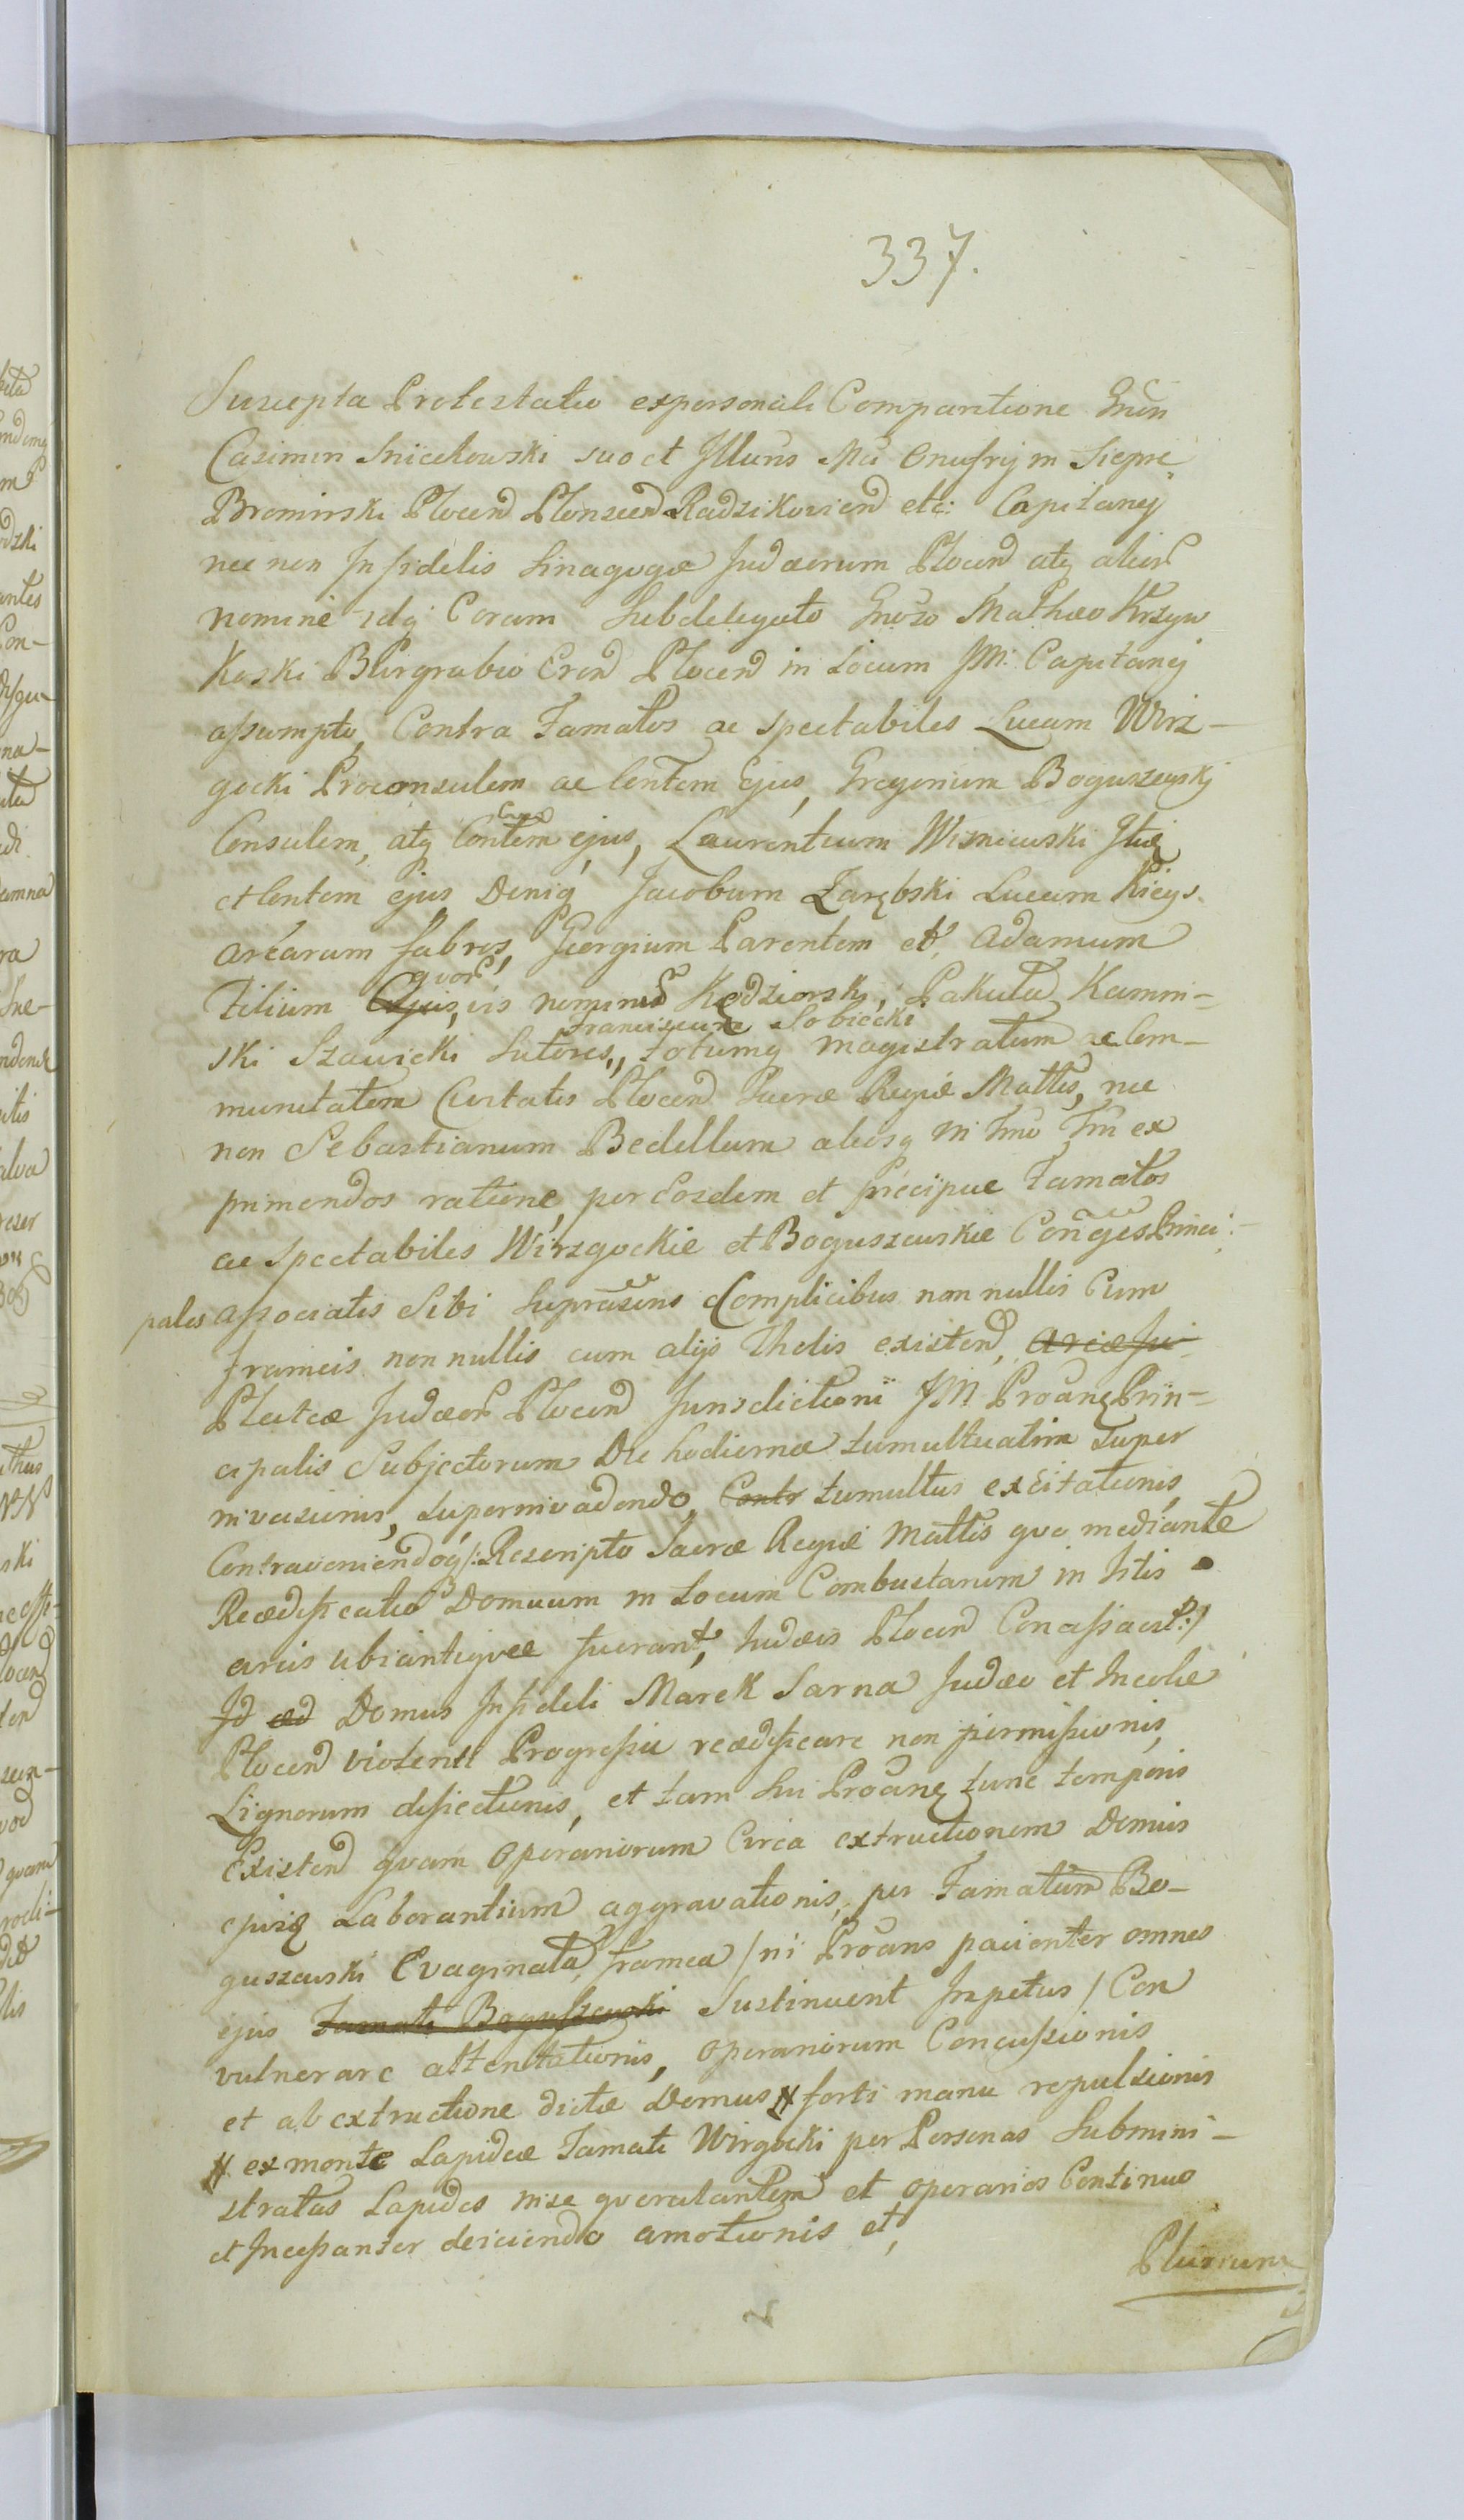 337.
Suscepta Protestatio ex personali Comparitione Gnōsi
Casimiri Snicchowski suo et Illuris Mci Onufrij in Sierpc
Bromirski Plocen Plonscen Radzikovien etc: Capitanej
nec non Infidelis Sinagogæ Judæorum Plocen atq alior
nomine idq Coram Subdelegato Gnōso Mathæo Krzyw
koski Burgrabio Cren Plocen in Locum JM: Capitanej
assumpto, Contra Famatos ac Spectabiles Lucam Wirz-
gocki Proconsulem ac Contem Ejus, Gregorium Boguszewskj
Consulem, atq Contem ejus, Laurentium Wisniewski
et Contem ejus Deniq Jacobum Zarębski Lucam
arcarum fabros, Georgium Parentem et Adamum
Filium quor, vis nominis Kędziorski, Pakuła, Kamin-
Franciscum Sobiecki
ski Szawicki Sutores,, totumq magistratum ac Com-
munitatem Civitatis Plocen Sacræ Regiæ Mattis, nec
non Sebastianum Bedellum aliosq in Tmo Tm ex
primendos ratione, per Eosdem et præcipue Famatos
ac Spectabiles Wirzgockie et Boguszewskie Conges Princi-
pales associatis Sibi Suprascns Complicibus non nullis Cum
frameis non nullis cum alijs Thelis existen,
Plateæ Judæor Plocen Jurisdictioni JM Proāns Prin-
cipalis Subjectorum Die hodierna tumultuatim Super
invasionis, Superinvadendo, Contr tumultus excitationis,
Contraveniendoq /: Rescripto Sacræ Regiæ Mattis quo mediante
Reædificatio Domuum in Locum Combustarum in Sitis
areis ubi antiquæ fuerant, Judæis Plocen Concessa est :/
Id æd Domus Infideli Marek Sarna Judæo et Incolæ
Plocen violenti Progressu reædificare non permissionis,
Lignorum disiectionis, et tam Sui Proāns tunc temporis
Existen quam Operariorum Circa extructionem Domus
ejusq Laborantium aggravationis, per Famatum Bo-
guszewski Evaginata framea / ni Proāns pacienter omnes
ejus Famati Boguszewski Sustinuerit Impetus / Con
vulnerare attentationis, Operariorum Concussionis
et ab extructione dictæ Domus # forti manu repulsionis
# ex monte Lapideæ Famati Wirgocki per Personas Submini-
stratas Lapides in se querulantem et operarios Continuo
et Incessanter deiciendo amotionis et,
Plurium